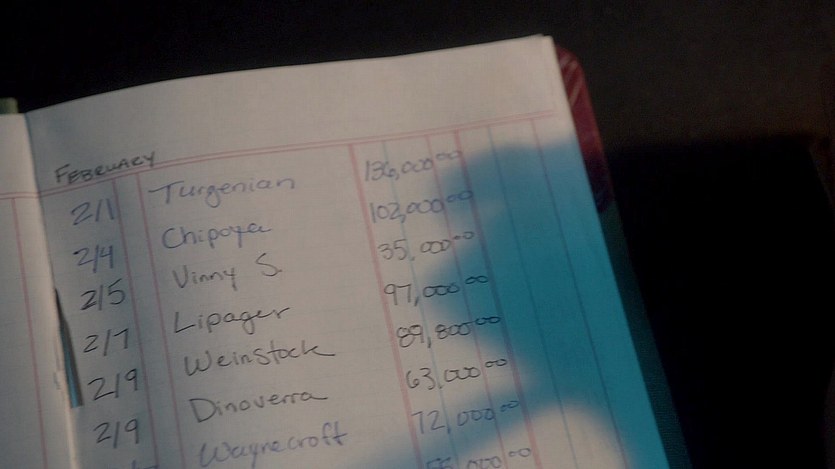 FEBRUARY
2/1 Turgenian 136,000.00
2/4 Chipoya 102,000.00
2/5 Vinny S. 35,000.00
2/7 Lipager 97,000.00
2/9 Weinstock 89,800.00
2/9 Dinoverra 63,000.00
Waynecroft 72,000.00